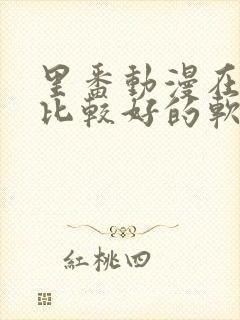 里番動漫在
比較好的軟
紅桃四